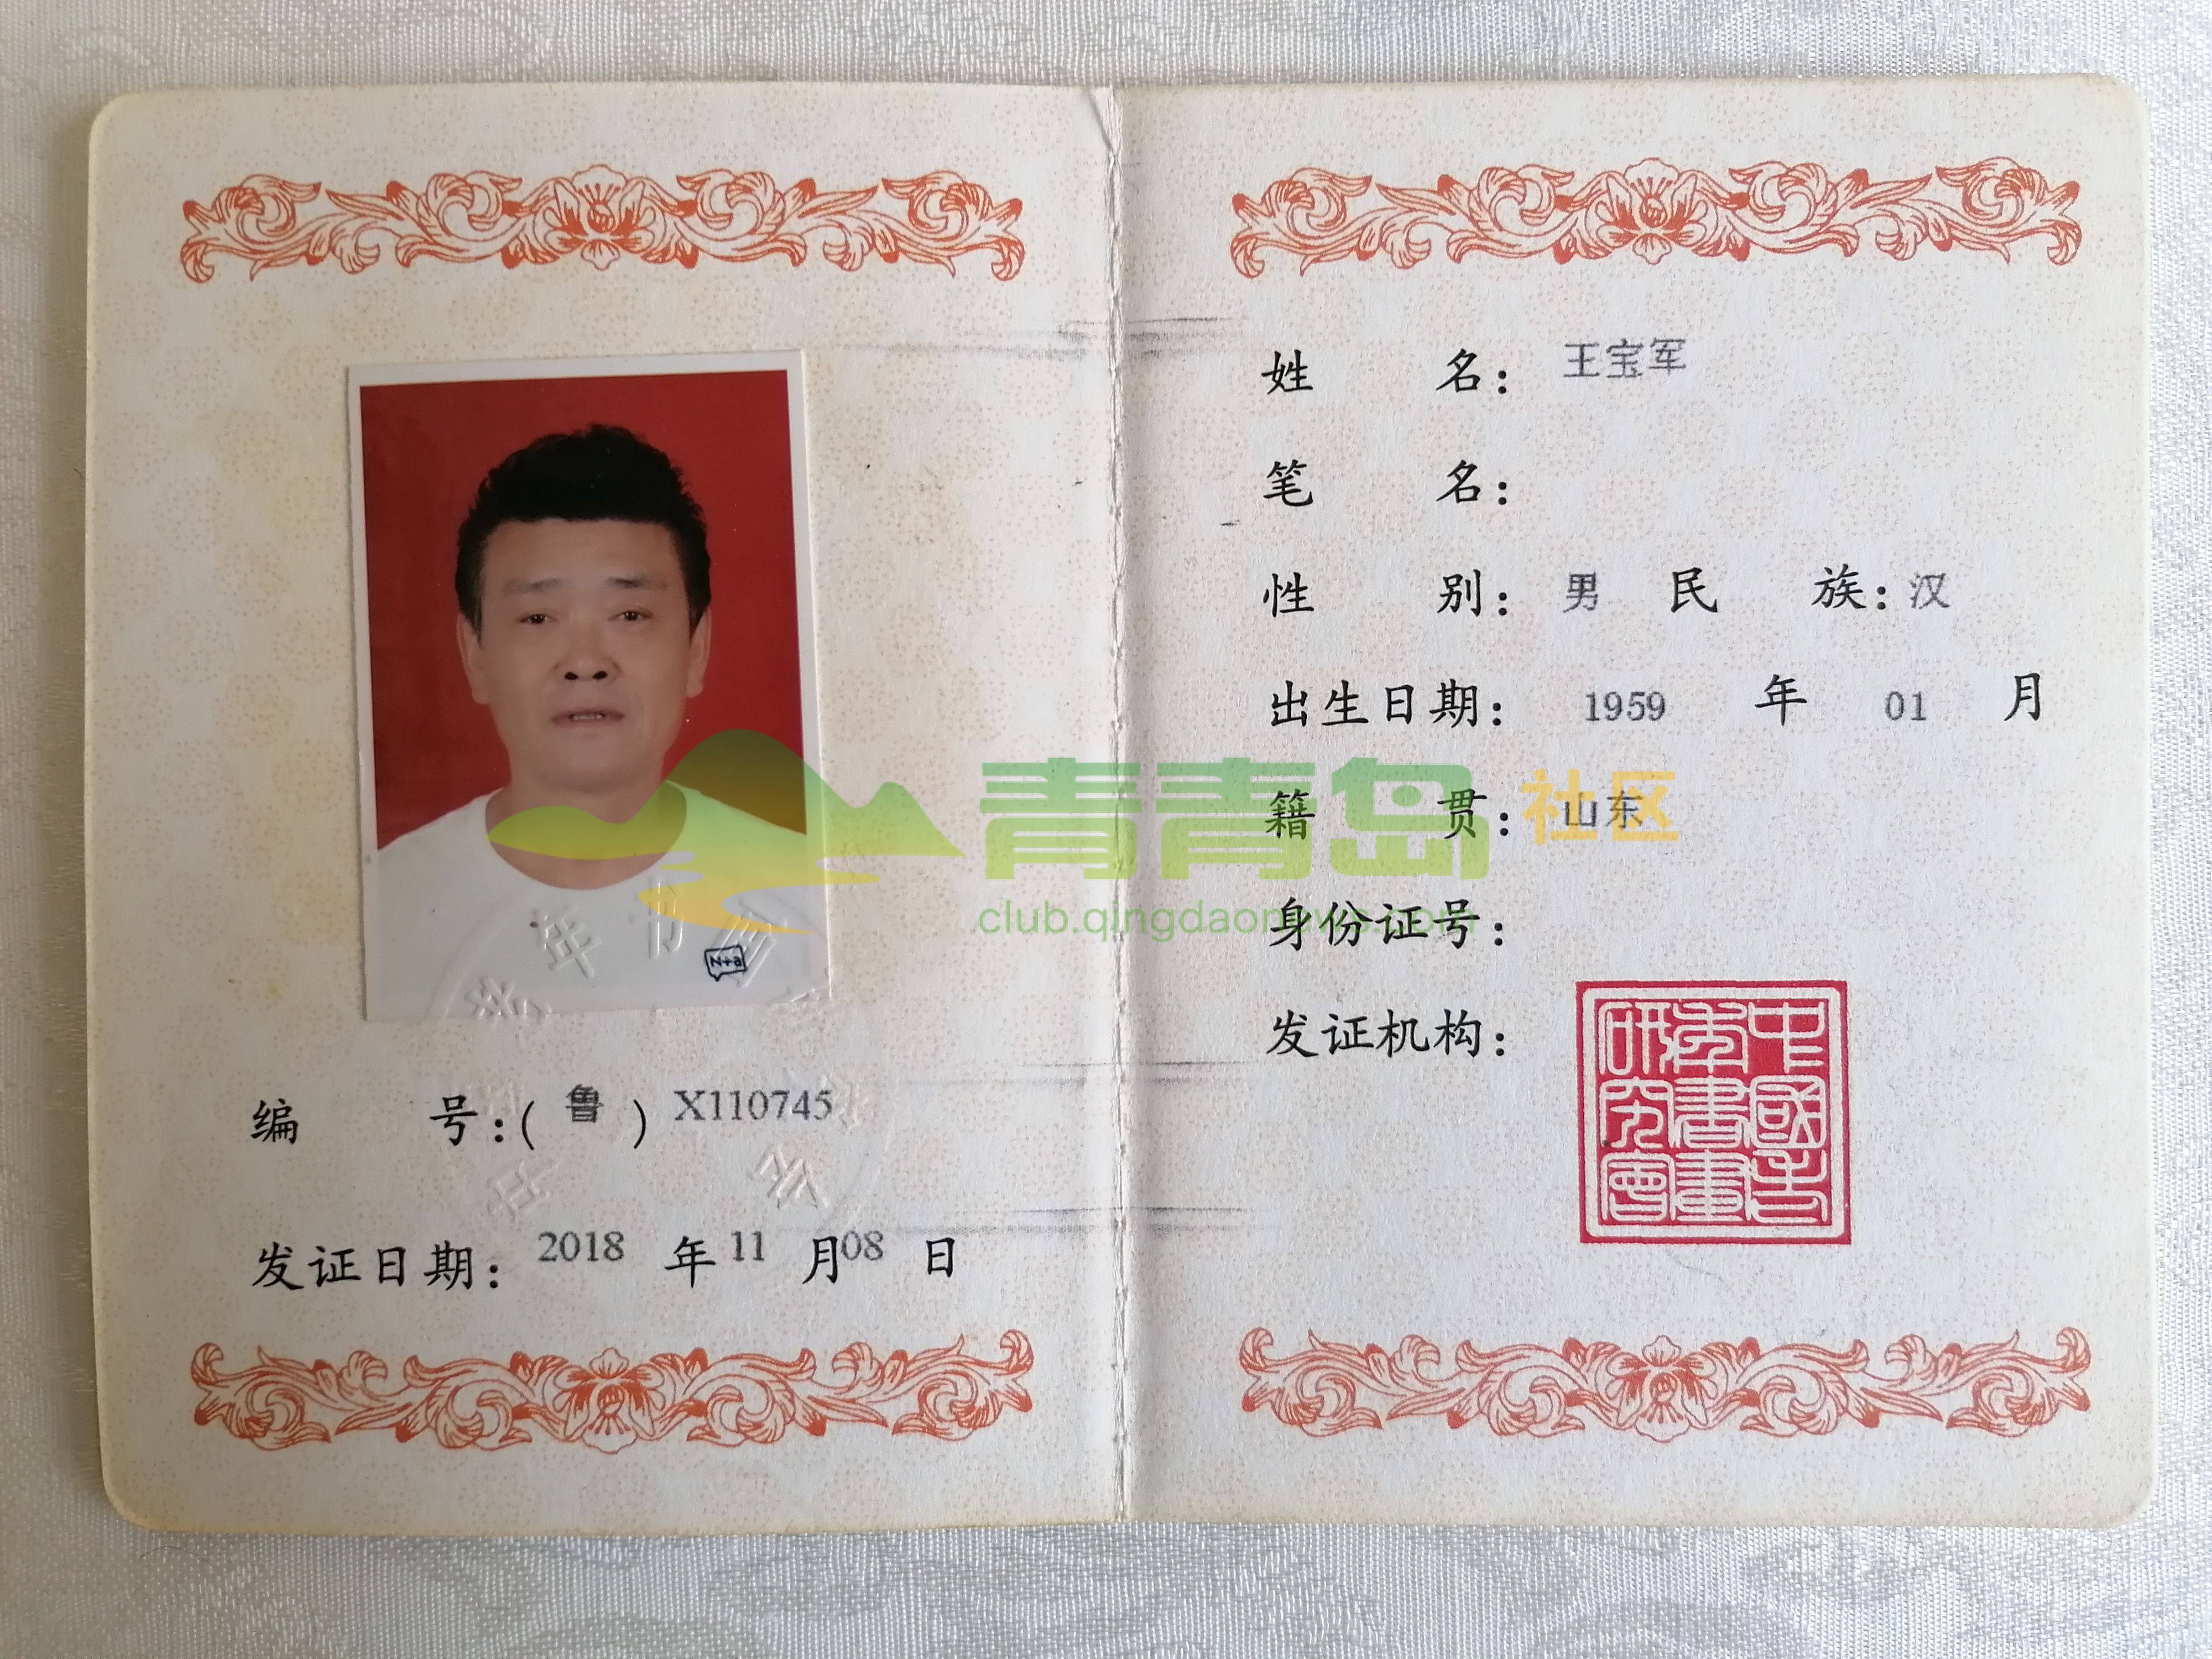 编 号:(鲁) X110745
发证日期: 2018 年 11 月 08 日
姓 名: 王宝军
笔 名:
性 别: 男 民 族: 汉
出生日期: 1959 年 01 月
籍 贯: 山东
身份证号:
发证机构:
中國老
年書畫
研究會
青青岛社区
club.qingdaonews.com